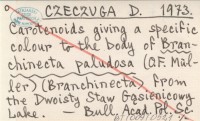 CZECZUGA D. 1973.
Carotenoids giving a specific
colour to the body of Bran-
chinecta paludosa (O.F. Mül-
ler) (Branchinecta) from
the Dwoisty Staw Gąsienicowy
Lake. — Bull. Acad. Pol. Sc.